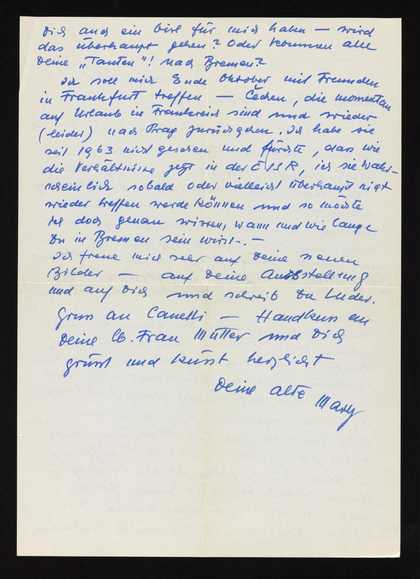 Dich auch ein bisl für mich haben — wird
das überhaupt gehen? Oder kommen alle
Deine „Tanten"! nach Bremen?
Ich soll mich Ende Oktober mit Freunden
in Frankfurt treffen — Čechen, die momentan
auf Urlaub in Frankreich sind und wieder
(leider) nach Prag zurückgehen. Ich habe sie
seit 1963 nicht gesehen und fürchte, dass wie
die Verhältnisse jetzt in der ČSSR, ich sie wahr-
scheinlich sobald oder vielleicht überhaupt nicht
wieder treffen werde können und so möchte
ich doch genau wissen, wann und wie lange
Du in Bremen sein wirst. —
Ich freue mich sehr auf Deine neuen
Bilder — auf Deine Ausstellung
und auf Dich und schreib Du Luder.
Gruss an Canetti — Handkuss an
Deine lb. Frau Mutter und Dich
grüsst und küsst herzlichst
Deine alte Mary